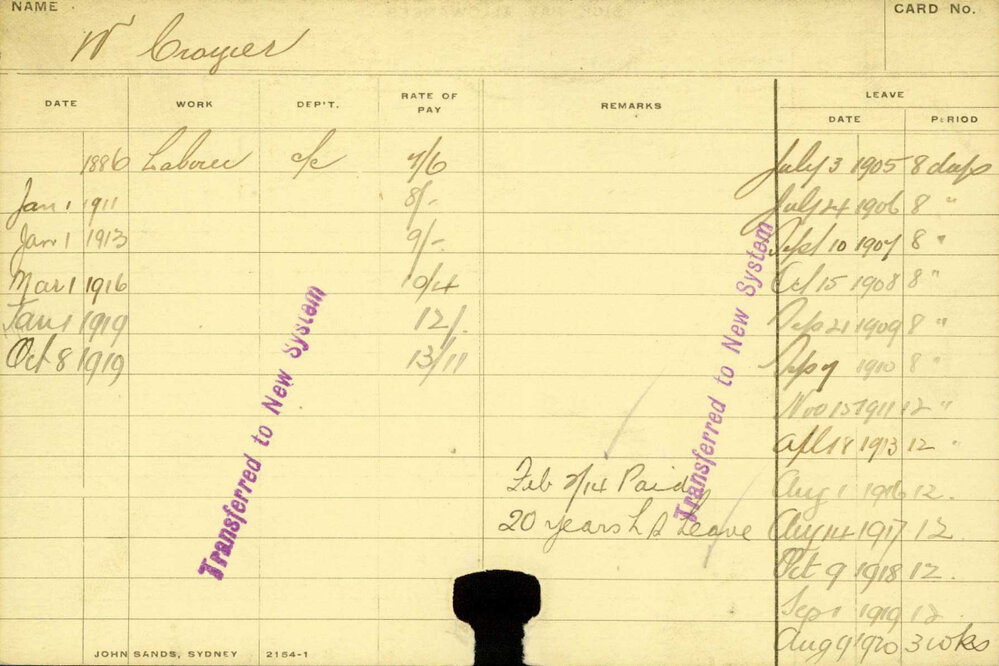 NAME
CARD No.
W Crozier
DATE WORK DEP'T. RATE OF PAY REMARKS LEAVE
DATE PERIOD
1886 Labourer c/c 7/6 July 3 1905 8 days
Jan 1 1911 8/- July 24 1906 8 "
Jan 1 1913 9/- Sept 10 1907 8 "
Mar 1 1916 10/4 Oct 15 1908 8 "
Jan 1 1919 12/. Sep 21 1909 8 "
Oct 8 1919 13/11 Sep 7 1910 8 "
Nov 13 1911 12 "
Apl 18 1913 12 "
Feb 7/14 Paid Aug 1 1916 12.
20 years L S Leave Aug 14 1917 12.
Oct 9 1918 12.
Sep 1 1919 12
Aug 9 1920 3 wks
Transferred to New System
Transferred to New System
JOHN SANDS, SYDNEY 2154-1